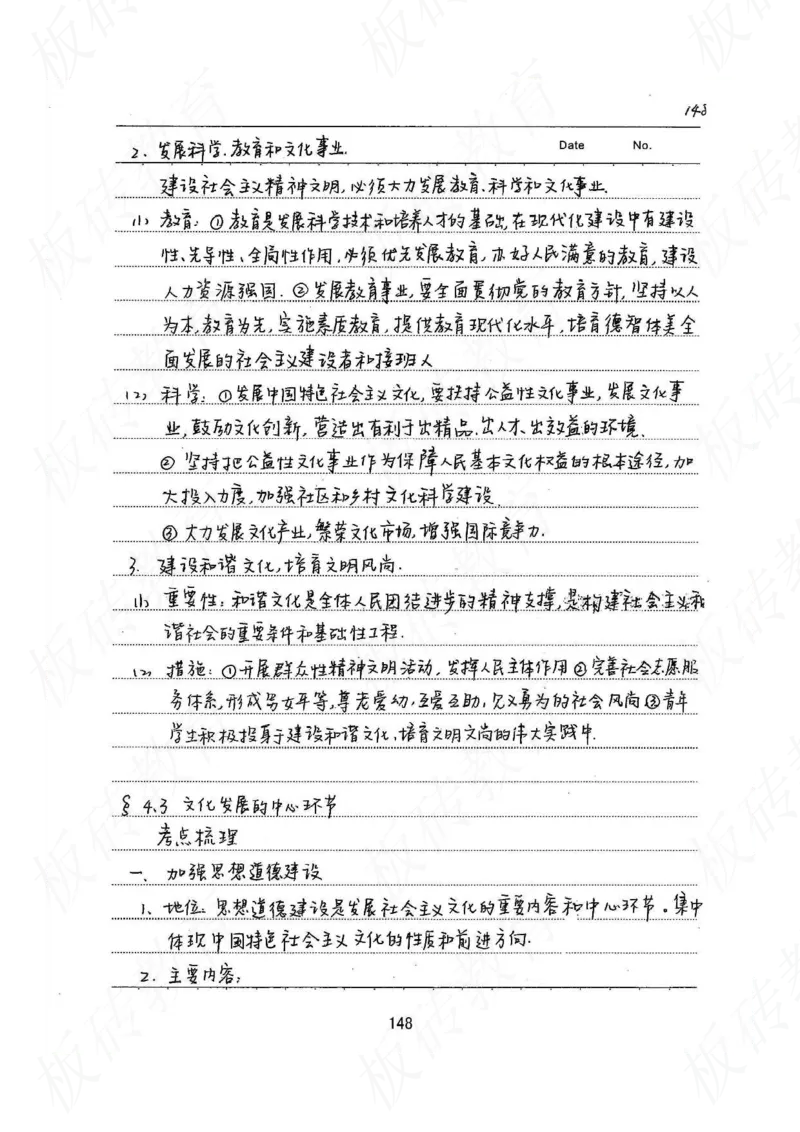 148
2、发展科学、教育和文化事业. Date No.
建设社会主义精神文明,必须大力发展教育、科学和文化事业.
(1) 教育:①教育是发展科学技术和培养人才的基础,在现代化建设中有建设
性、先导性、全局性作用,必须优先发展教育,办好人民满意的教育,建设
人力资源强国. ②发展教育事业,要全面贯彻党的教育方针,坚持以人
为本,教育为先,实施素质教育,提供教育现代化水平,培育德智体美全
面发展的社会主义建设者和接班人
(2) 科学:①发展中国特色社会主义文化,要扶持公益性文化事业,发展文化事
业,鼓励文化创新,营造出有利于出精品、出人才、出效益的环境、
②坚持把公益性文化事业作为保障人民基本文化权益的根本途径,加
大投入力度,加强社区和乡村文化科学建设
③大力发展文化产业,繁荣文化市场,增强国际竞争力.
3. 建设和谐文化,培育文明风尚.
(1) 重要性:和谐文化是全体人民团结进步的精神支撑,是构建社会主义和
谐社会的重要条件和基础性工程.
(2) 措施:①开展群众性精神文明活动,发挥人民主体作用②完善社会志愿服
务体系,形成男女平等,尊老爱幼,互爱互助,见义勇为的社会风尚③青年
学生积极投身于建设和谐文化,培育文明文尚的伟大实践中.
§4.3 文化发展的中心环节
考点梳理
一、加强思想道德建设
1、地位:思想道德建设是发展社会主义文化的重要内容和中心环节。集中
体现中国特色社会主义文化的性质和前进方向.
2. 主要内容:
148
板砖教育